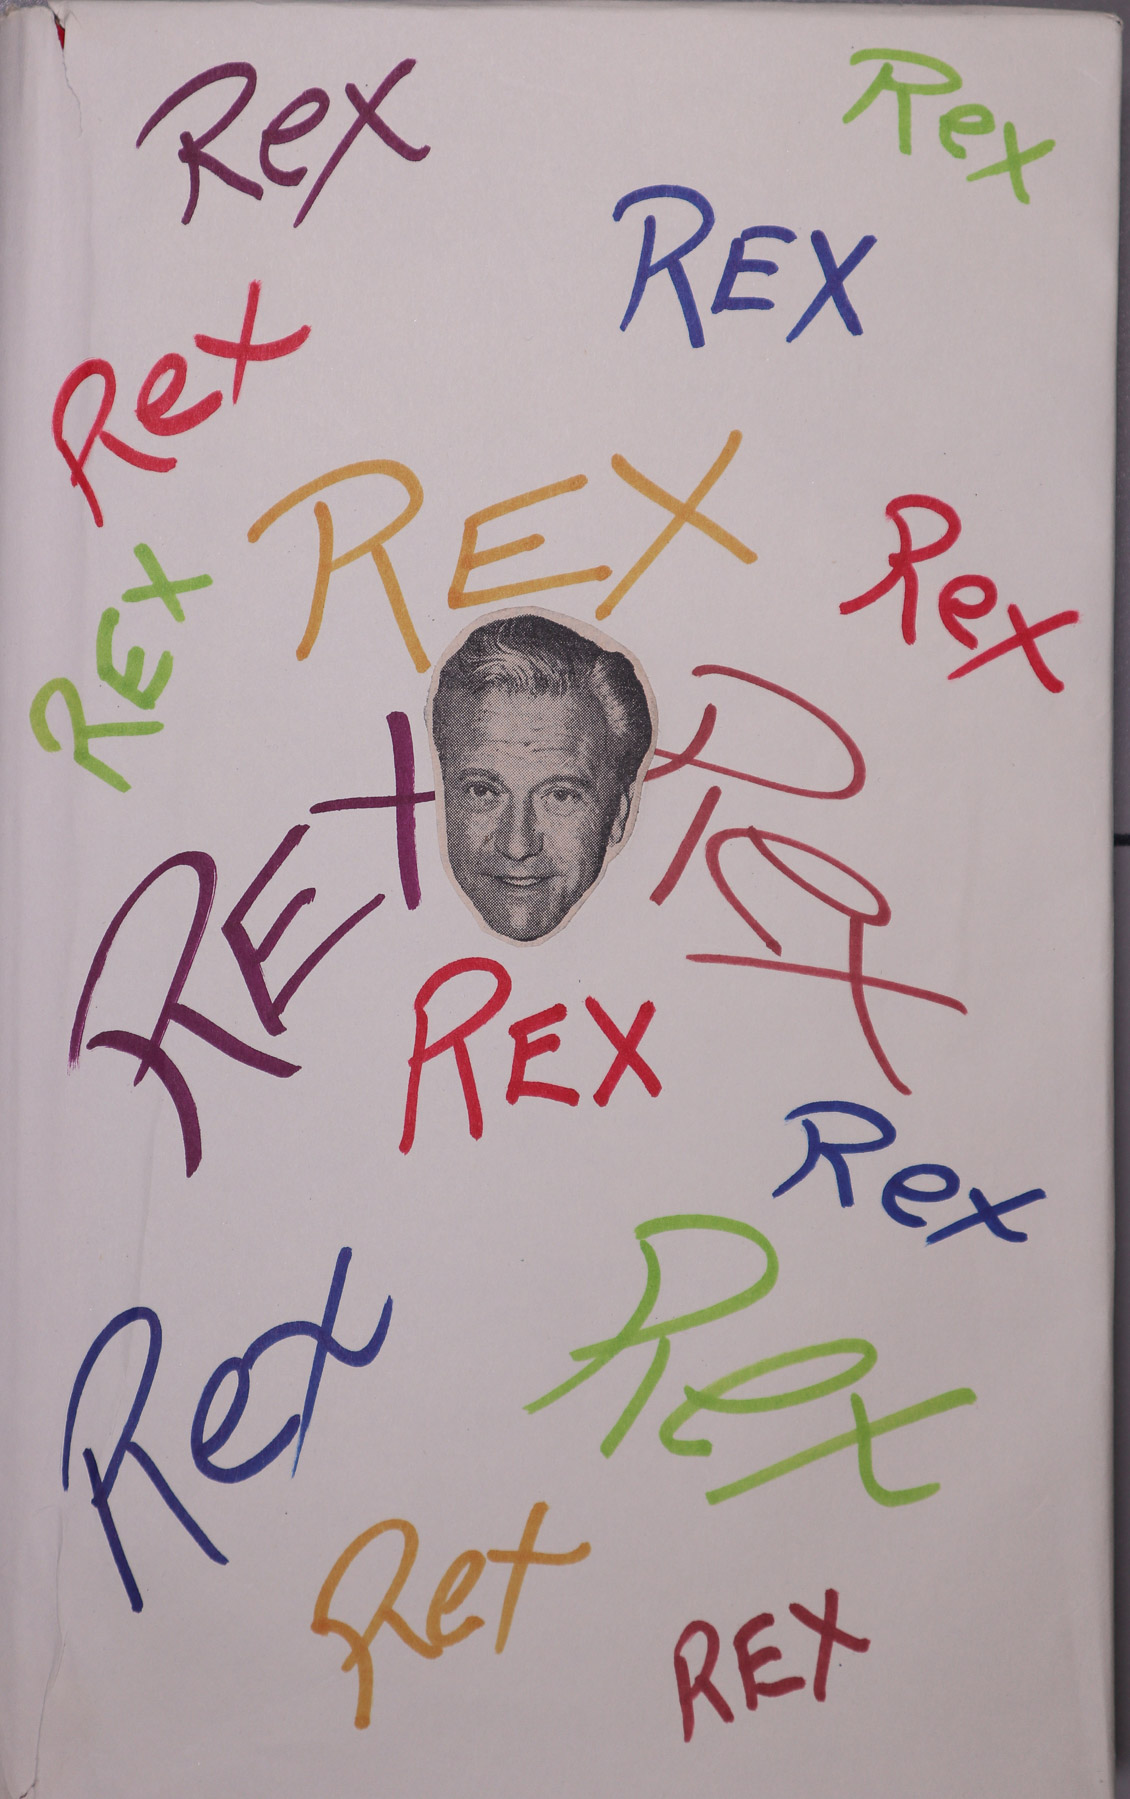 Rex
Rex
REX
Rex
REX
Rex
REX
REX
Rex
REX
Rex
Rex
Rex
Rex
REX